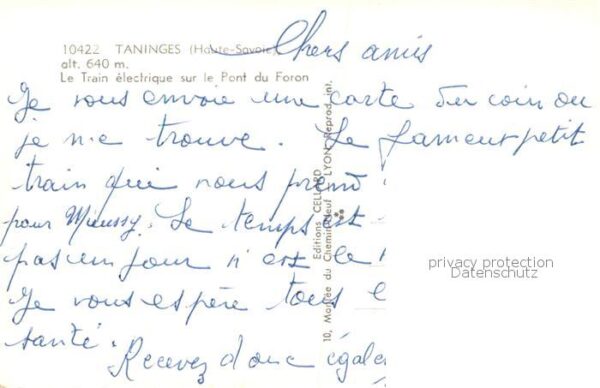 10422 TANINGES (Haute-Savoie)
alt. 640 m.
Le Train électrique sur le Pont du Foron
Chers amis
Je vous envoie une carte du coin ou
je me trouve. Le fameux petit
train qui nous prend
pour Mieussy. Le temps est
pas un jour n'est le
Je vous espère tous
santé.
Recevez donc égale
Editions CELLARD
10, Montée du Chemin-Neuf LYON Reprod. int.
privacy protection
Datenschutz